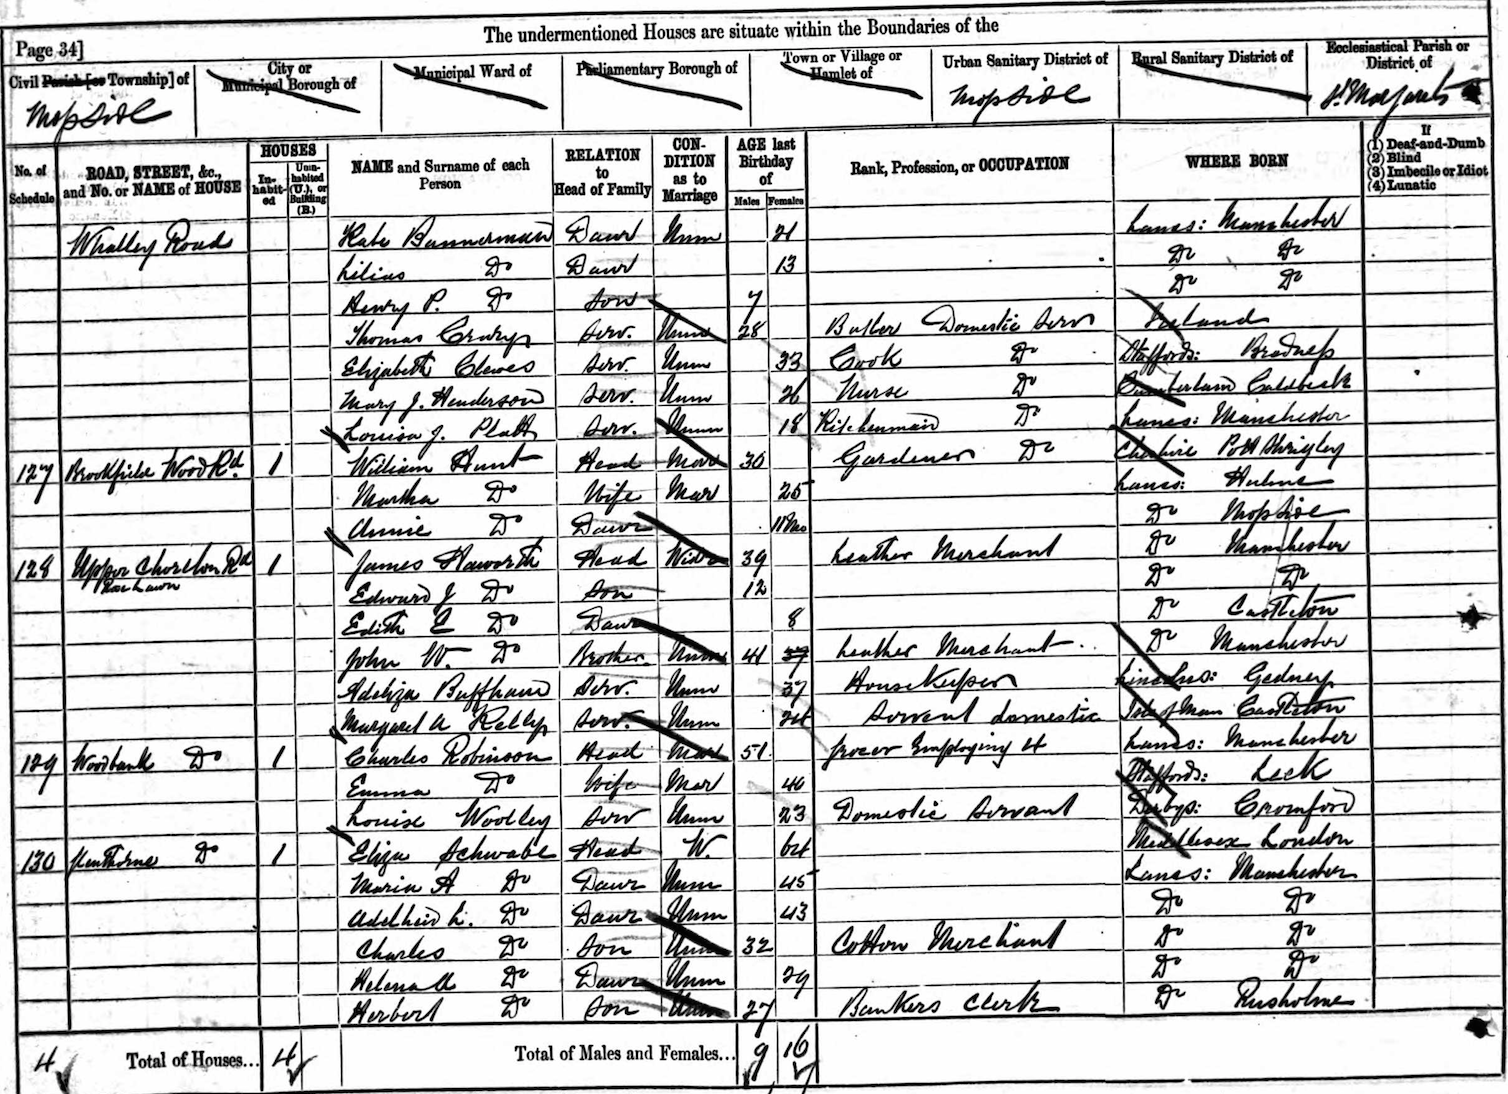 The undermentioned Houses are situate within the Boundaries of the
Page 34]
Civil Parish [or Township] of
City or Municipal Borough of
Municipal Ward of
Parliamentary Borough of
Town or Village or Hamlet of
Urban Sanitary District of
Rural Sanitary District of
Ecclesiastical Parish or District of
Moss Side
Moss Side
St Margarets
No. of Schedule
ROAD, STREET, &c., and No. or NAME of HOUSE
HOUSES
In-habit-ed
Unin-habited (U.), or Building (B.)
NAME and Surname of each Person
RELATION to Head of Family
CON-DITION as to Marriage
AGE last Birthday of
Males
Females
Rank, Profession, or OCCUPATION
WHERE BORN
If
(1) Deaf-and-Dumb
(2) Blind
(3) Imbecile or Idiot
(4) Lunatic
Whalley Road Kate Bannerman Daur Unm 21 Lancs: Manchester
Lilias Do Daur 13 Do Do
Henry P. Do Son 7 Do Do
Thomas Serv. Unm 28 Butler Domestic Serv Ireland
Elizabeth Clewes Serv. Unm 33 Cook Do Staffords:
Mary J. Henderson Serv. Unm 26 Nurse Do Cumberland Caldbeck
Louisa J. Platt Serv. Unm 18 Kitchenmaid Do Lancs: Manchester
127 Brookfield Wood Rd. 1 William Hunt Head Mar 30 Gardener Do Cheshire Pott Shrigley
Martha Do Wife Mar 25 Lancs: Hulme
Annie Do Daur 11 Mo Do Moss Side
128 Upper Chorlton Rd 1 James Haworth Head Widr 39 Leather Merchant Do Manchester
Rose Lawn Edward J Do Son 12 Do Do
Edith E Do Daur 8 Do Castleton
John W. Do Brother Unm 41 37 Leather Merchant Do Manchester
Adeliza Buffham Serv. Unm 37 Housekeeper Lincolns: Gedney
Margaret A Kelly Serv. Unm 24 Servant domestic Isle of Man Castleton
129 Woodbank Do 1 Charles Robinson Head Mar 51 Grocer Employing 4 Lancs: Manchester
Emma Do Wife Mar 40 Staffords: Leek
Louise Woolley Serv Unm 23 Domestic Servant Derbys: Cromford
130 Do 1 Eliza Schwabe Head W. 64 Middlesex London
Maria A Do Daur Unm 45 Lancs: Manchester
Adelheid L. Do Daur Unm 43 Do Do
Charles Do Son Unm 32 Cotton Merchant Do Do
Helena Do Daur Unm 29 Do Do
Herbert Do Son Unm 27 Bankers Clerk Do Rusholme
4 Total of Houses... 4 Total of Males and Females... 9 16